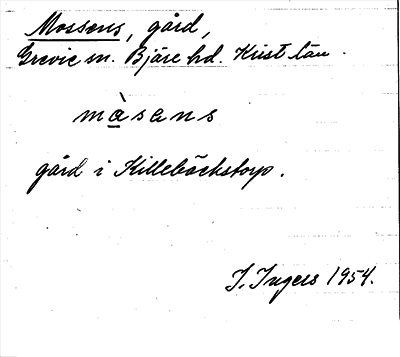 Mossens, gård,
Grevie sn. Bjäre hd. Krist län.
màsans
gård i Killebäckstorp.
I. Ingers 1954.